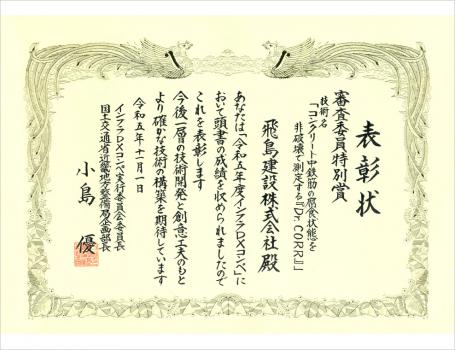 表彰状
審査委員特別賞
技術名
「コンクリート中鉄筋の腐食状態を
非破壊で測定する『Dr.CORR』」
飛島建設株式会社 殿
あなたは「令和五年度インフラDXコンペ」に
おいて頭書の成績を収められましたので
これを表彰します
今後一層の技術開発と創意工夫のもと
より確かな技術の構築を期待しています
令和五年十一月一日
インフラDXコンペ実行委員会委員長
国土交通省近畿地方整備局企画部長
小島 優